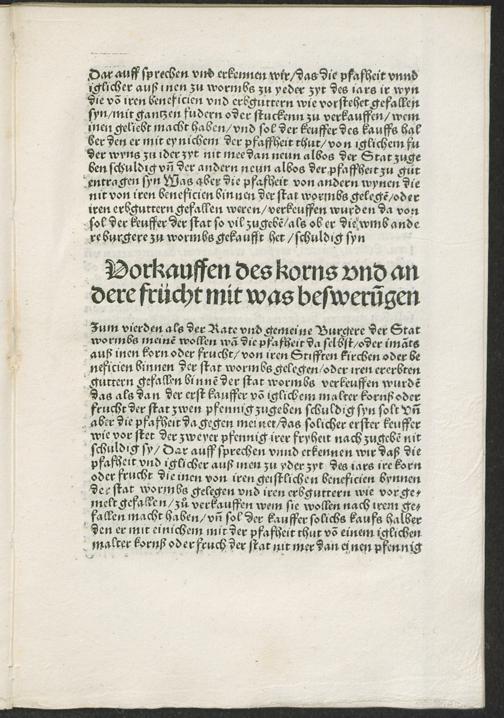 Dar auff sprechen vnd erkennen wir/das die pfafheit vnnd
iglicher auß inen zu wormbs zu yeder zyt des iars ir wyn
die vō iren beneficien vnd erbguttern wie vorstehet gefallen
syn/mit gantzen fudern oder stuckenn zu verkauffen/wem
inen geliebt macht haben/vnd sol der keuffer des kauffs hal
ber den er mit eynichem der pfaffheit thut/von iglichem fu
der wyns zu ider zyt nit me dan neun albos der Stat zuge
ben schuldig vn̄ der andern neun albos der pfaffheit zu gut
entragen syn Was aber die pfafheit von andern wynen die
nit von iren beneficien binnen der stat wormbs gelegē/oder
iren erbguttern gefallen weren/verkeuffen wurden da von
sol der keuffer der stat so vil zugebē/als ob er die wmb ande
re burgere zu wormbs gekaufft het/schuldig syn
Vorkauffen des korns vnd an
dere frücht mit was beswerūgen
Zum vierden als der Rate vnd gemeine Burgere der Stat
wormbs meinē wollen wā die pfafheit da selbst/oder imāts
auß inen korn oder frucht/von iren Stifften kirchen oder be
neficien binnen der stat wormbs gelegen/oder iren ererbten
guttern gefallen binnē der stat wormbs verkeuffen wurdē
das als dan der erst kauffer vō iglichem malter kornß oder
frucht der stat zwen pfennig zugeben schuldig syn solt Vn̄
aber die pfafheit da gegen meinet/das solicher erster keuffer
wie vor stet der zweyer pfennig irer fryheit nach zugebē nit
schuldig sy/Dar auff sprechen vnnd erkennen wir daß die
pfafheit vnd iglicher auß inen zu yder zyt des iars ire korn
oder frucht die inen von iren geistlichen beneficien bynnen
der stat wormbs gelegen vnd iren erbguttern wie vor ge-
melt gefallen/zů verkauffen wem sie wollen nach irem ge-
fallen macht haben/vn̄ sol der kauffer solichs kaufs halber
den er mit einichem mit der pfafheit thut vō einem iglichen
malter kornß oder fruch der stat nit mer dan einen pfennig